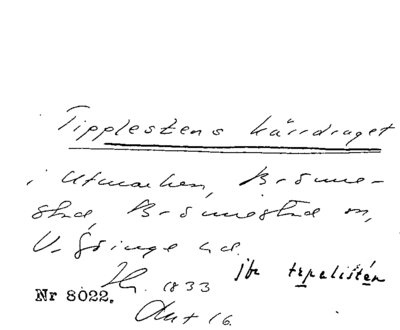 Tipplestens kärrdraget
i Utmarken, Brönne-
stad, Brönnestad sn,
V. Göinge hd.
Hr. 1833 jbr
Nr 8022.
Akt 16.